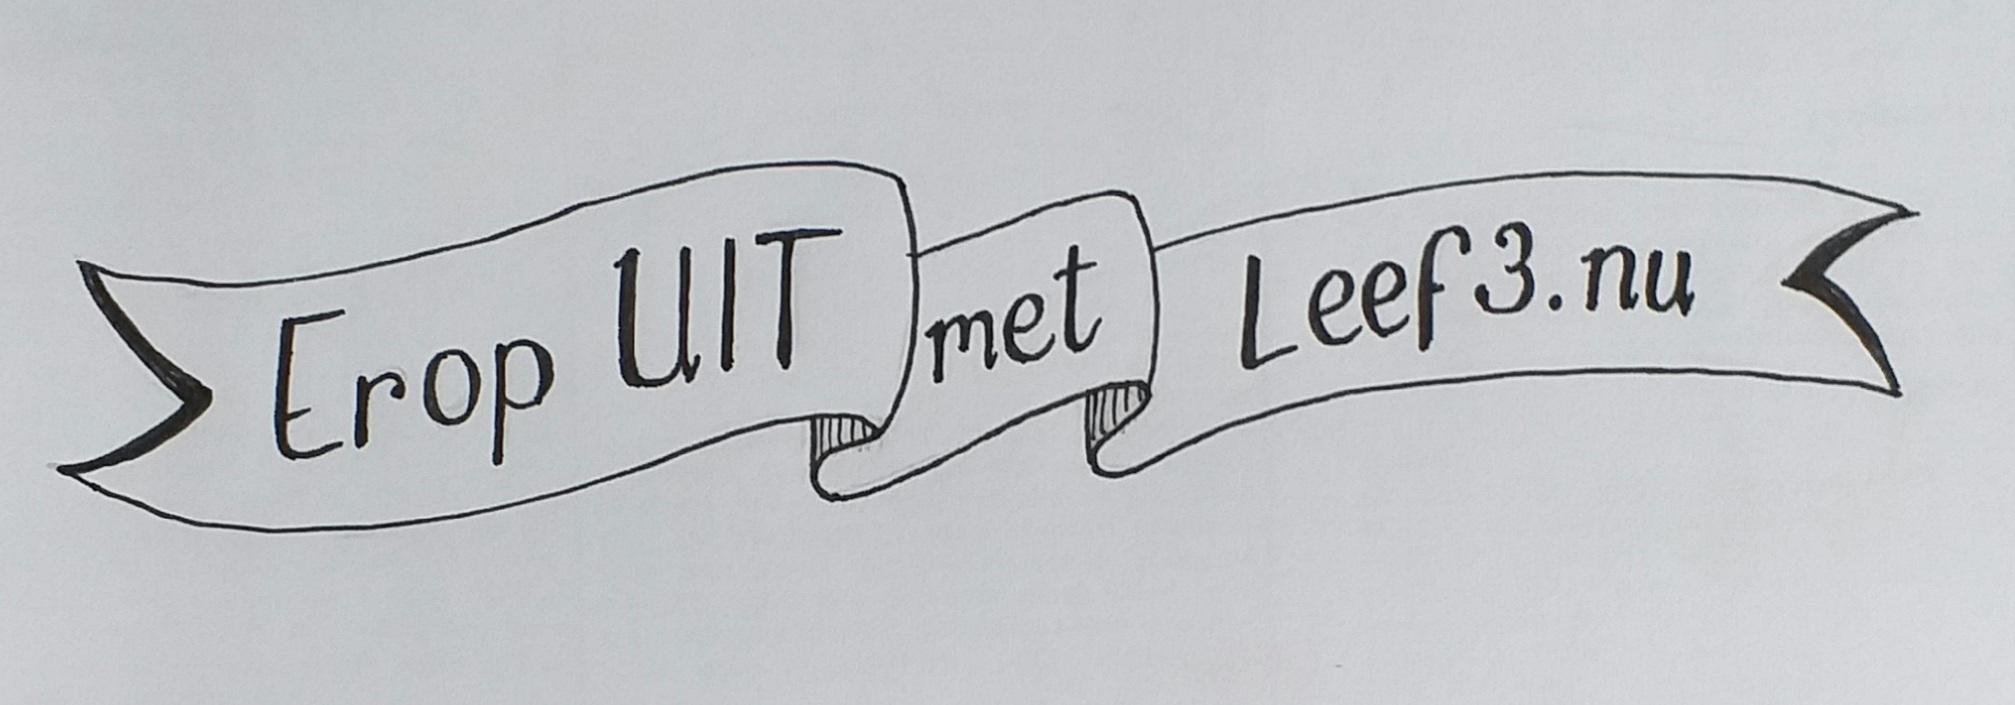 Erop UIT met Leef3.nu